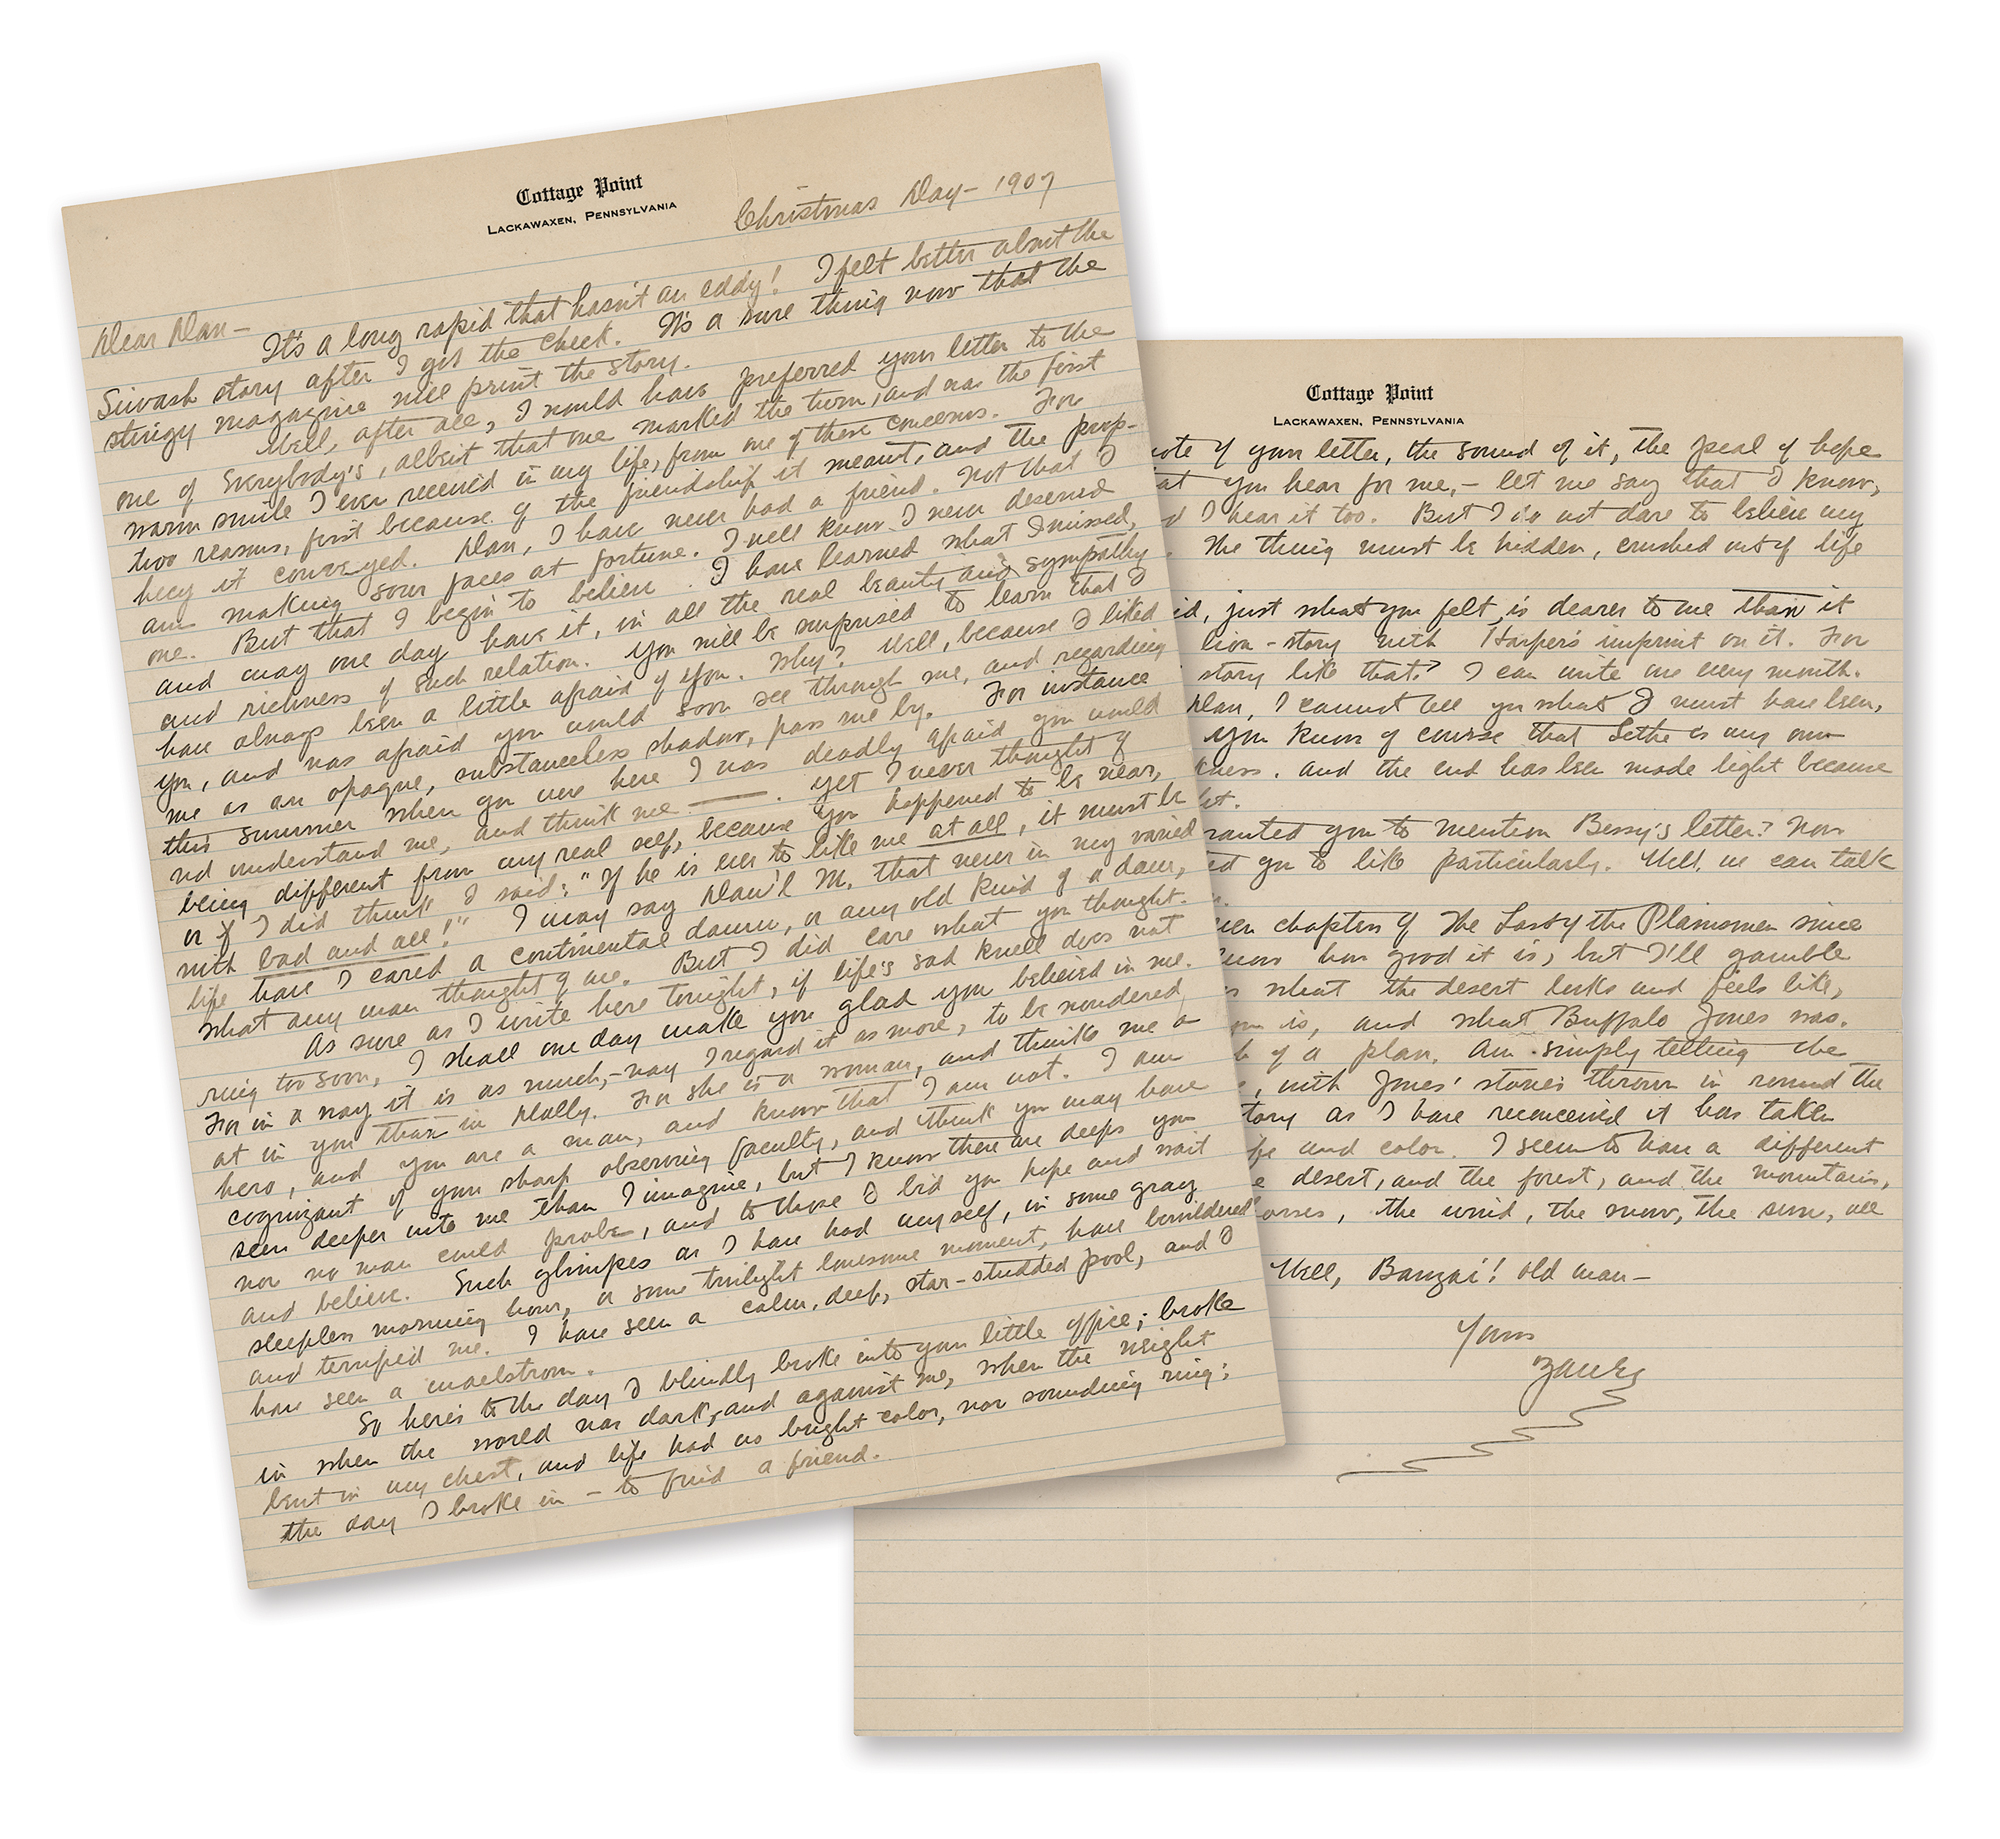 Cottage Point
LACKAWAXEN, PENNSYLVANIA
Christmas Day— 1907
Dear Dan—
It's a long rapid that hasn't an eddy! I felt better about the
Siwash story after I got the check. It's a sure thing now that the
stingy magazine will print the story.
Well, after all, I would have preferred your letter to the
one of Everybody's, albeit that one marked the turn, and was the first
warm smile I ever received in my life, from one of these concerns. For
two reasons, first because of the friendship it meant, and the prop-
hecy it conveyed. Dan, I have never had a friend. Not that I
am making sour faces at fortune. I well know I never deserved
one. But that I begin to believe. I have learned what I missed,
and may one day have it, in all the real beauty and sympathy
and richness of such relation. You will be surprised to learn that I
have always been a little afraid of you. Why? Well, because I liked
you, and was afraid you would soon see through me, and regarding
me as an opaque, substanceless shadow, pass me by. For instance
this summer when you were here I was deadly afraid you would
not understand me, and think me ——. Yet I never thought of
being different from my real self, because you happened to be near,
or if I did think I said: "If he is ever to like me at all, it must be
with bad and all!" I may say Dan'l M. that never in my varied
life have I cared a continental damn, or any old kind of a damn,
what any man thought of me. But I did care what you thought.
As sure as I write here tonight, if life's sad knell does not
ring too soon, I shall one day make you glad you believed in me.
For in a way it is as much,—nay I regard it as more, to be wondered
at in you than in Dolly. For she is a woman, and thinks me a
hero, and you are a man, and know that I am not. I am
cognizant of your sharp observing faculty, and think you may have
seen deeper into me than I imagine, but I know there are deeps you
nor no man could probe, and to those I bid you hope and wait
and believe. Such glimpses as I have had myself, in some gray
sleepless morning hour, or some twilight lonesome moment, have bewildered
and terrified me. I have seen a calm, deep, star-studded pool, and I
have seen a maelstrom.
So here's to the day I blindly broke into your little office; broke
in when the world was dark, and against me, when the weight
bent in my chest, and life had no bright color, nor sounding ring;
the day I broke in – to find a friend.
Cottage Point
LACKAWAXEN, PENNSYLVANIA
note of your letter, the sound of it, the peal of hope
at you hear for me,— let me say that I know,
d I hear it too. But I do not dare to believe my
. The thing must be hidden, crushed out of life
id, just what you felt, is dearer to me than it
lion-story with Harper's imprint on it. For
story like that? I can write one every month.
Dan, I cannot tell you what I must have been,
you know of course that Lethe is my own
kness. And the end has been made light because
ht.
wanted you to mention Bessy's letter? Now
ed you to like particularly. Well, we can talk
ven chapters of The Last of the Plainsmen since
know how good it is, but I'll gamble
s what the desert looks and feels like,
is, and what Buffalo Jones was.
h of a plan. Am simply telling the
, with Jones' stories thrown in round the
tory as I have reconceived it has taken
fe and color. I seem to have a different
e desert, and the forest, and the mountains,
orses, the wind, the snow, the sun, all
Well, Banzai! old man—
Yours
Zaney